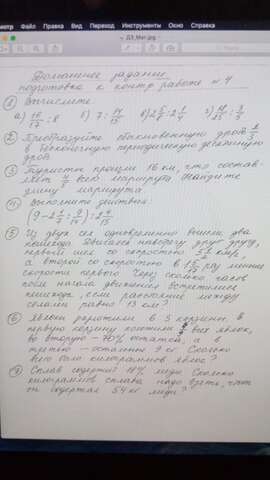 Инструменты Окно Справка
ДЗ_Мат.jpg
Домашнее задание
подготовка к контр работе № 4
① Вычислите
② Преобразуйте обыкновенную дробь
в бесконечную периодическую десятичную
дробь.
③ Туристы прошли 16 км, что состав-
ляет всего маршрута. Найдите
длину маршрута.
④ Выполните действия:
⑤ Из двух сел одновременно вышли два
пешехода двигаясь навстречу друг другу,
первый шёл со скоростью км/ч,
а второй со скоростью в раз меньше
скорости первого. Через сколько часов
после начала движения встретились
пешеходы, если расстояние между
селами равно 13 км?
⑥ Яблоки разложили в 3 корзины. В
первую корзину положили всех яблок,
во вторую – 70% остатка, а в
третью – остальные 9 кг. Сколько
всего было килограммов яблок?
⑦ Сплав содержит 18% меди. Сколько
килограммов сплава надо взять, чтобы
он содержал 54 кг меди?